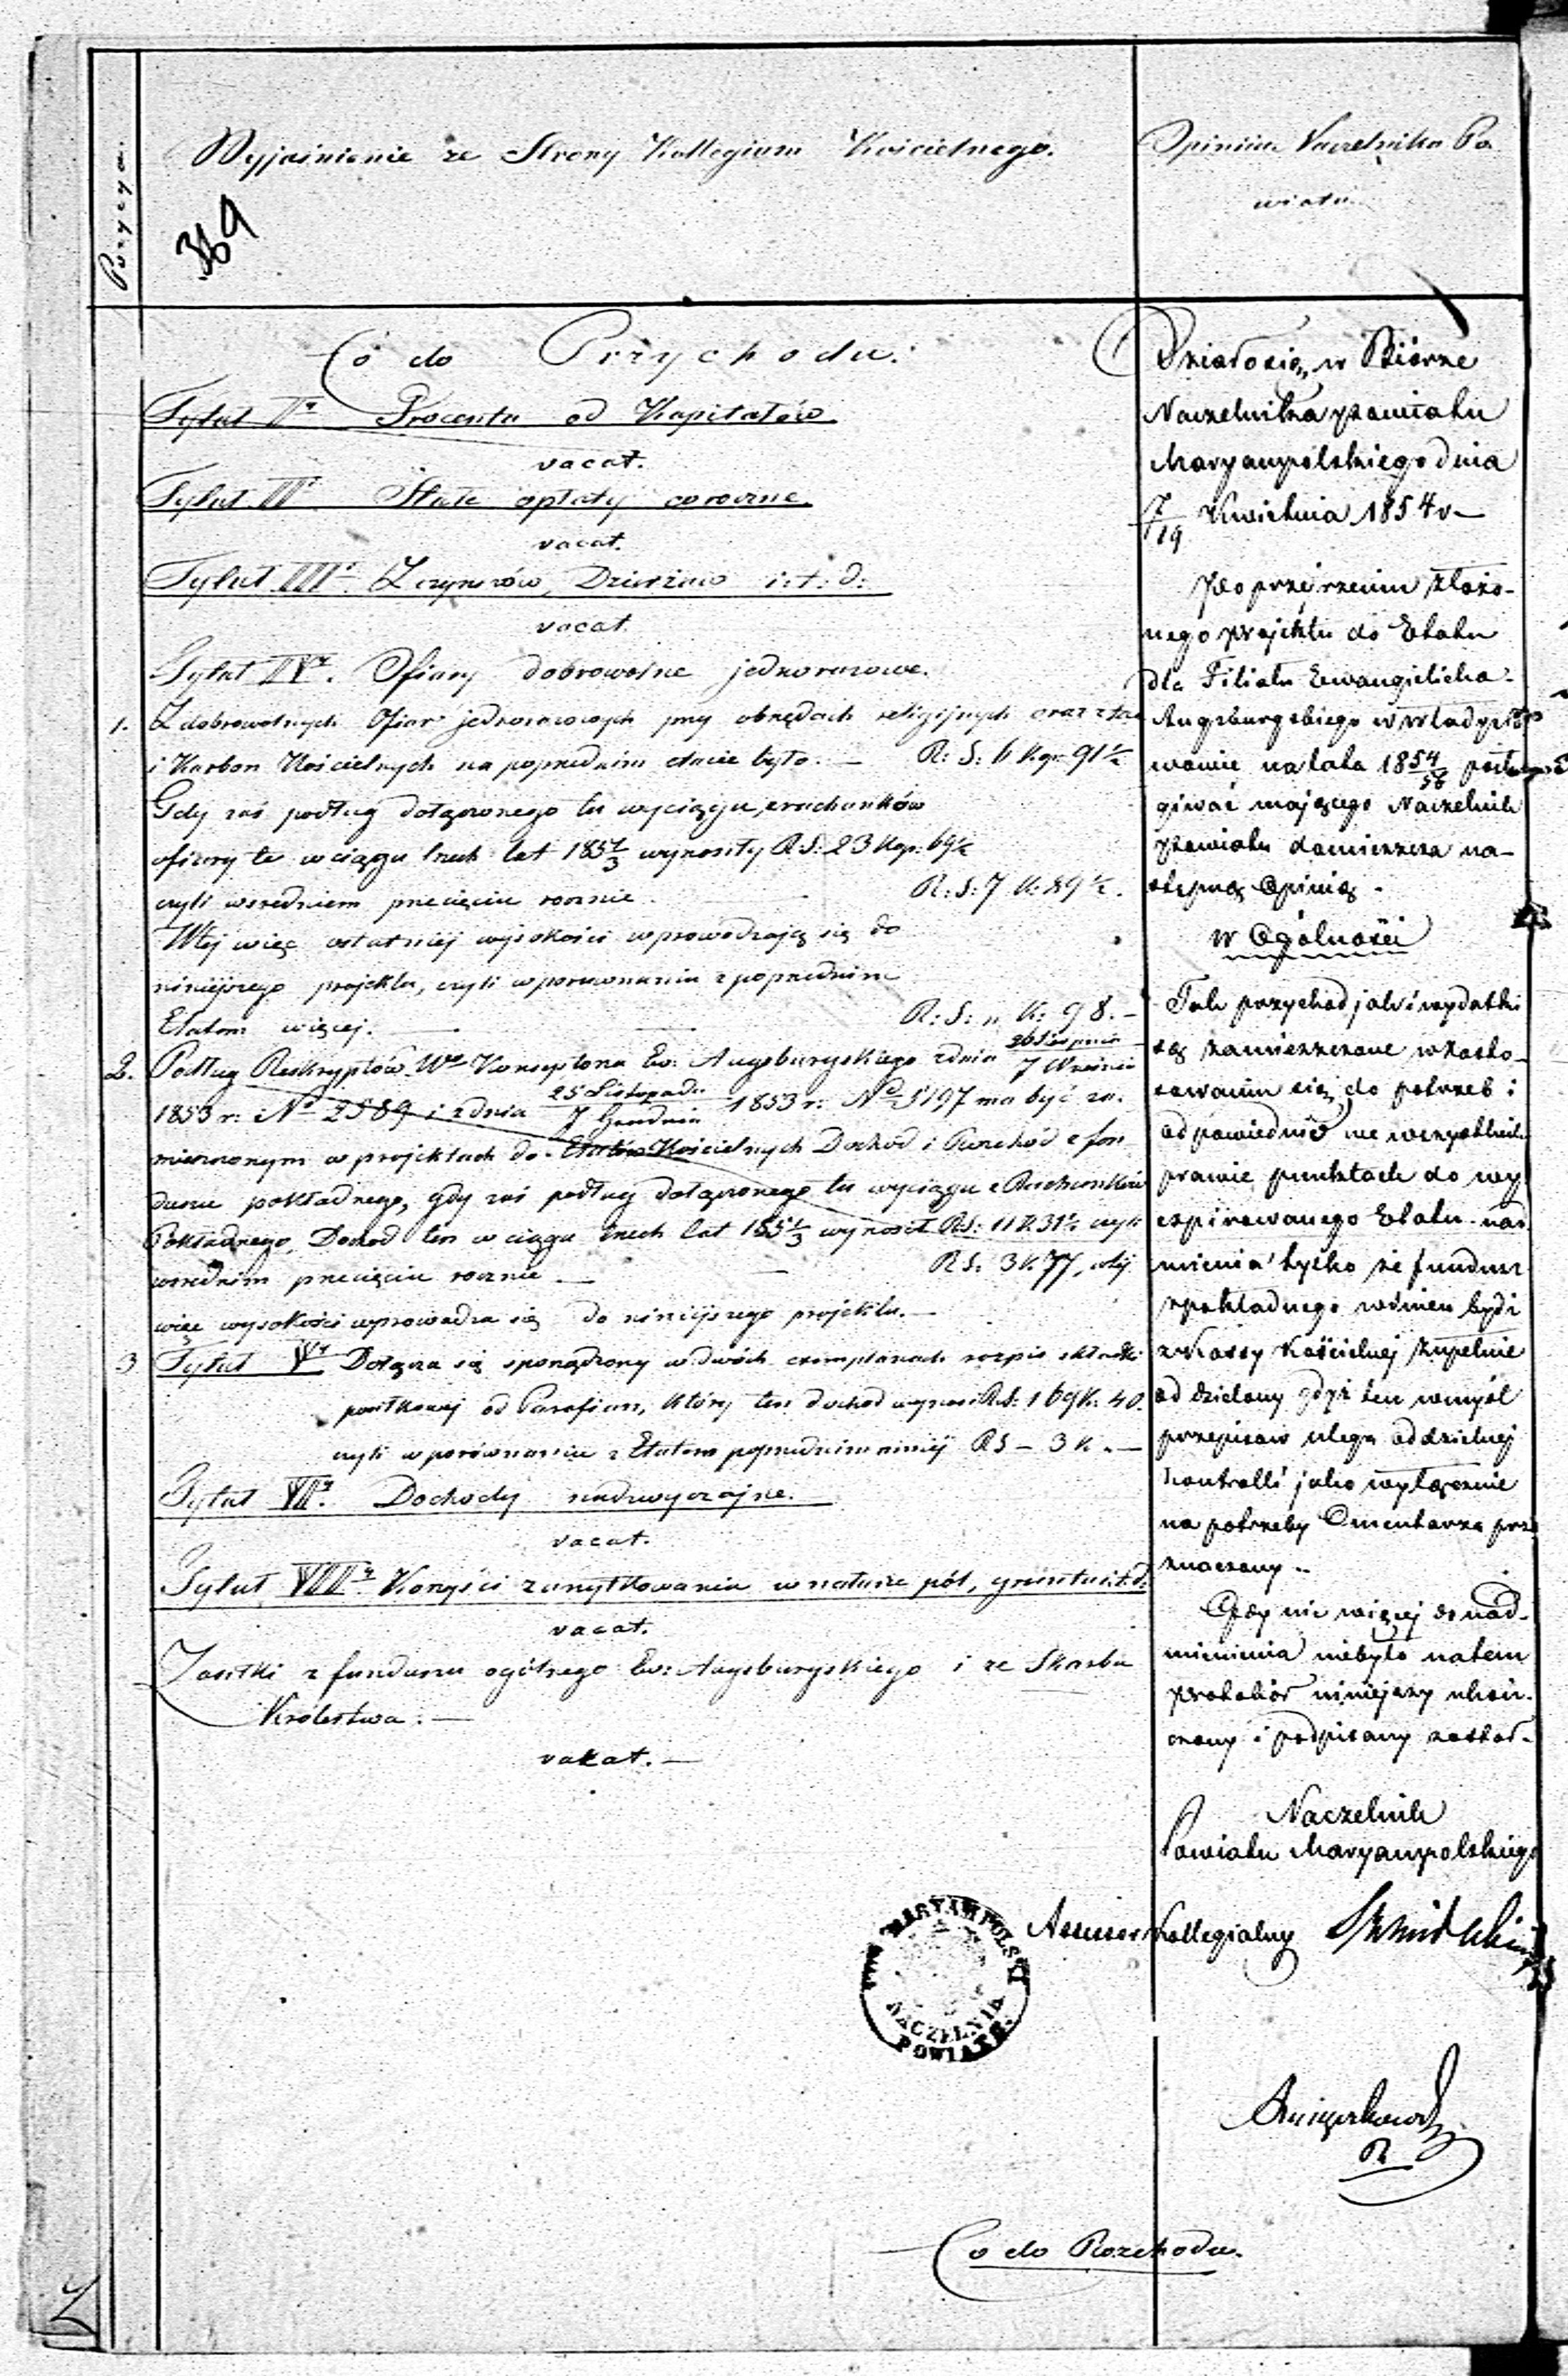 Pozycya.
Wyjaśnienie ze Strony Kollegium Kościelnego.
369
Co do Przychodu.
Tytuł Iy Procenta od Kapitałów
vacat.
Tytuł IIi Stałe opłaty coroczne.
vacat.
Tytuł IIIi Z czynszów, Dzierżaw i.t.d:
vacat.
Tytuł IVy. Ofiary dobrowolne jednorazowe.
1. Z dobrowolnych Ofiar jednorazowych przy obrzędach religijnych oraz z tac
i Karbon Kościelnych na poprzednim etacie było. — R: S: 6 Kop. 91½
Gdy zaś podług dołączonego tu wyciągu z rachunków
ofiary te w ciągu trzech lat 185 1/3 wynosiły R.S: 23 Kop: 69½
czyli w średniem przecięciu rocznie R: S: 7 K: 89½.
W tej więc ostatniej wysokości wprowadzają się do
niniejszego projektu, czyli w porównaniu z poprzednim
Etatem więcej. — R: S: „ K: 98. —
2. Podług Reskryptów Wo Konsystorza Ew: Augsburgskiego z dnia 26 Sierpnia / 7 Września
1853 r: No 2589 i z dnia 25 Listopada / 7 Grudnia 1853 r: No 5197 ma być za-
mieszczonym w projektach do Etatów Kościelnych Dochód i Rozchód z fun
duszu pokładnego, gdy zaś podług dołączonego tu wyciągu z Rachunków
Pokładnego, Dochód ten w ciągu trzech lat 185 1/3 wynosił RS: 11 K 31½ czyli
w średnim przecięciu rocznie — RS: 3 K 77, w tej
więc wysokości wprowadza się do niniejszego projektu. —
3 Tytuł Vy Dołącza się sporządzony w dwóch exemplarzach rozpis składki
od Parafian, który ten dochód wynosi RS: 169 K: 40.
czyli w porównaniu z Etatem poprzednim mniej RS — 3 K „ —
Tytuł VIy. Dochody nadzwyczajne.
vacat.
Tytuł VIIy Korzyści z użytkowania w naturze pól, gruntu i.t.d.
vacat.
Zasiłki z funduszu ogólnego Ew: Augsburgskiego i ze Skarbu
Królestwa. —
vakat. —
Opinia Naczelnika Po
wiatu
Działo się w Biórze
Naczelnika powiatu
Maryampolskiego dnia
7/19 Kwietnia 1854 r —
Po przejrzeniu złożo-
nego projektu do Etatu
dla Filiału Ewangielicko-
Augsburgskiego w Władysła
wowie na lata 18 54/56
mającego Naczelnik
powiatu zamieszcza na-
stępną Opinią —
w Ogólności
Tak przychód jak i wydatki
są zamieszczone w zasto-
sowaniu się do potrzeb i
odpowiednio we wszystkich
prawie punktach do wy
expirowanego Etatu nad
mienia tylko że fundusz
z pokładnego winien być
z Kassy Kościelnej zupełnie
oddzielony gdyż ten w myśl
przepisów ulega oddzielnej
kontrolli jako wyłącznie
na potrzeby Cmentarza prze
znaczony —
Gdy nic więcej do nad-
mienienia niebyło zatem
protokół niniejszy ukoń-
czony i podpisany został —
Naczelnik
Powiatu Maryampolskiego
Assessor Kollegialny
MARYAMPOLSKI
NACZELNIK
POWIATU
Co do Rozchodu.